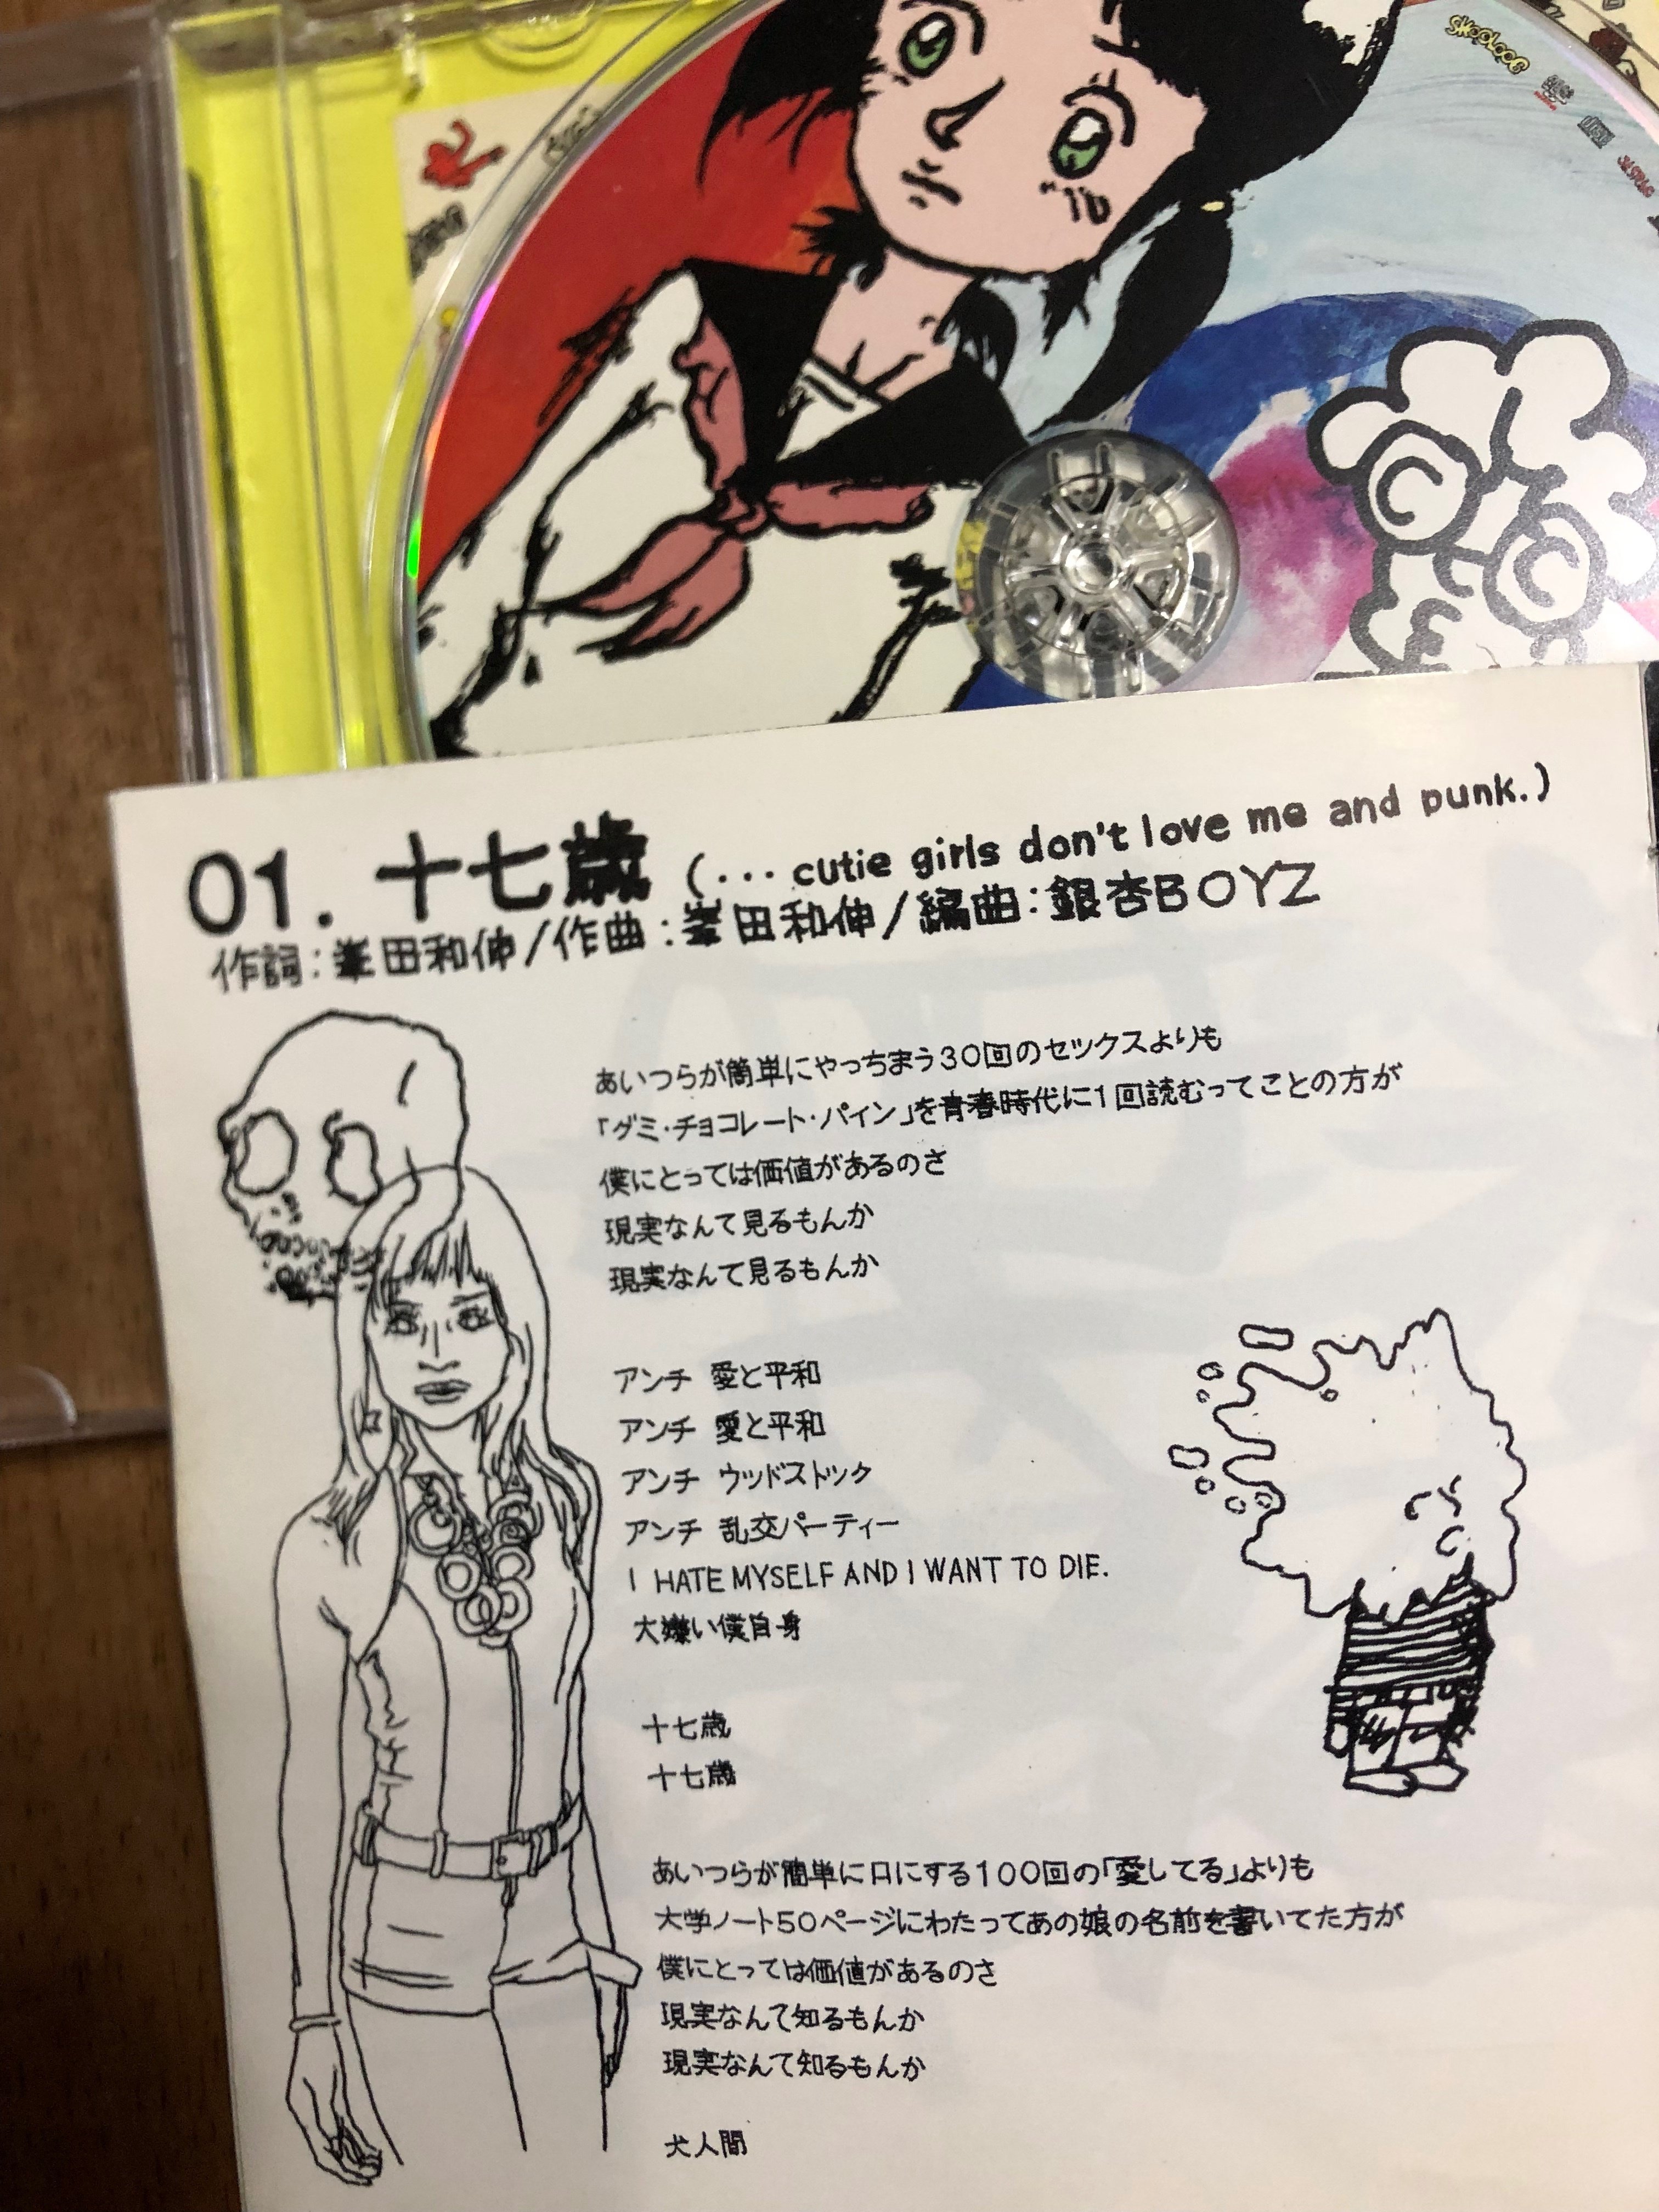 SKOOLOOE
01. 十七歳 (... cutie girls don't love me and punk.)
作詞:峯田和伸/作曲:峯田和伸/編曲:銀杏BOYZ
あいつらが簡単にやっちまう30回のセックスよりも
「グミ・チョコレート・パイン」を青春時代に1回読むってことの方が
僕にとっては価値があるのさ
現実なんて見るもんか
現実なんて見るもんか
アンチ 愛と平和
アンチ 愛と平和
アンチ ウッドストック
アンチ 乱交パーティー
I HATE MYSELF AND I WANT TO DIE.
大嫌い僕自身
十七歳
十七歳
あいつらが簡単に口にする100回の「愛してる」よりも
大学ノート50ページにわたってあの娘の名前を書いてた方が
僕にとっては価値があるのさ
現実なんて知るもんか
現実なんて知るもんか
犬人間